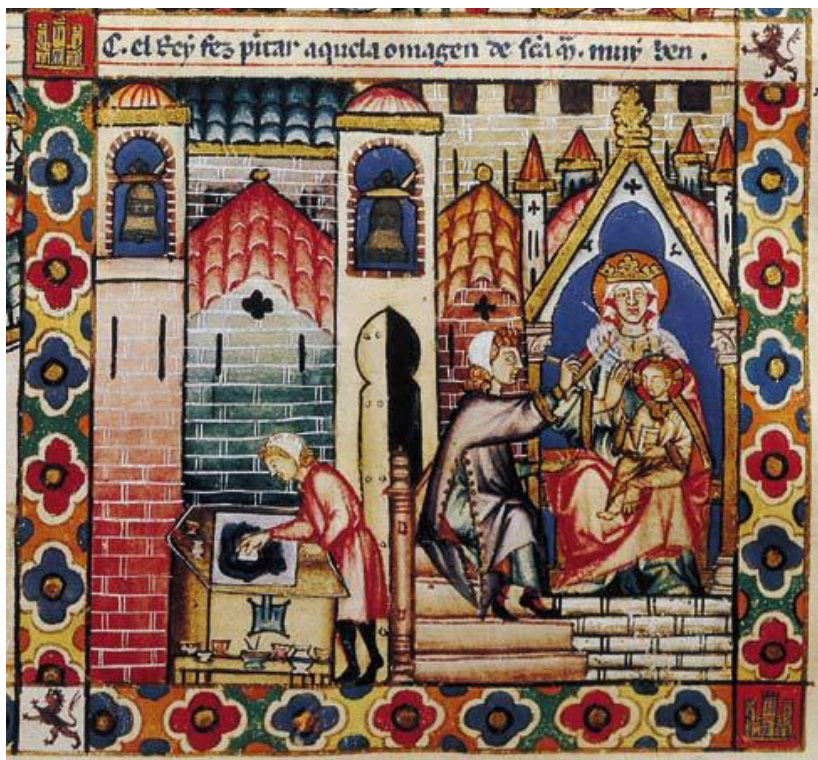 C. el Rey fez pītar aquela omagen de scā m̄. muy ben.